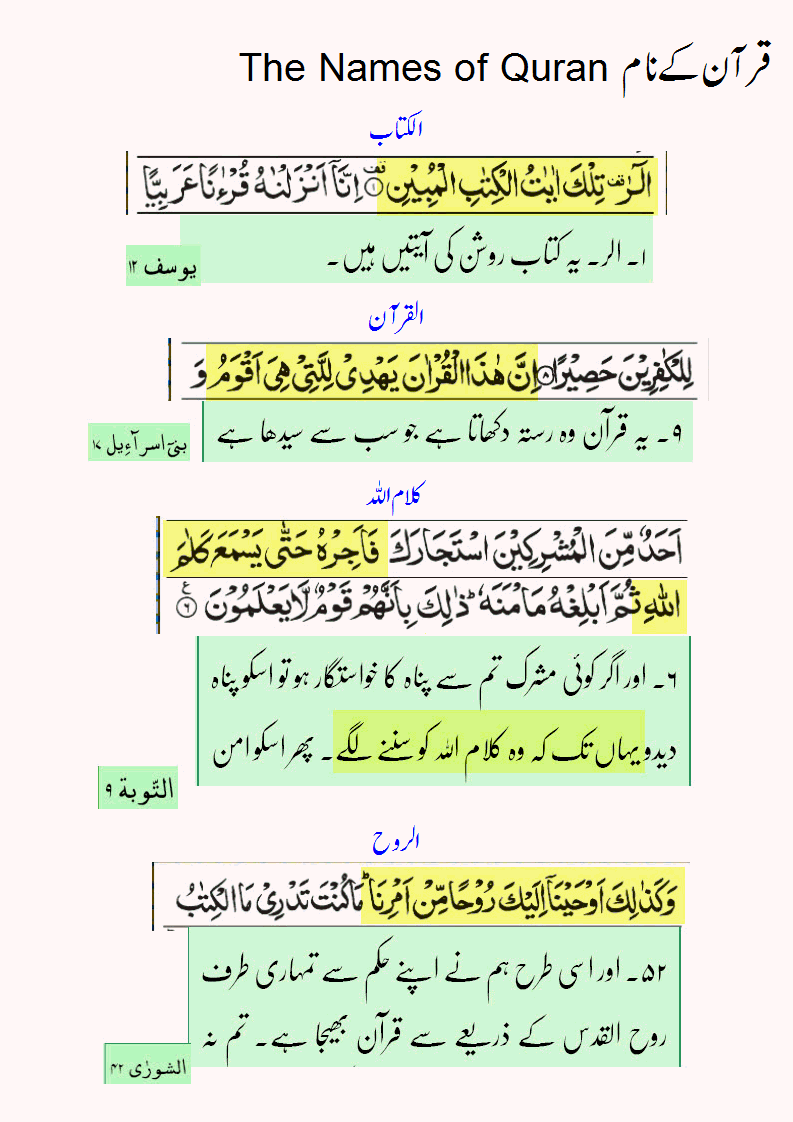 قرآن کے نام The Names of Quran
الکتاب
الٓرٰ ۚ تِلْكَ اٰیٰتُ الْكِتٰبِ الْمُبِیْنِ ۟۝۱ اِنَّاۤ اَنْزَلْنٰهُ قُرْءٰنًا عَرَبِیًّا
۱۔ الر۔ یہ کتاب روشن کی آیتیں ہیں۔
یوسف ۱۲
القرآن
لِلْكٰفِرِیْنَ حَصِیْرًا ۝۸ اِنَّ هٰذَا الْقُرْاٰنَ یَهْدِیْ لِلَّتِیْ هِیَ اَقْوَمُ وَ
۹۔ یہ قرآن وہ رستہ دکھاتا ہے جو سب سے سیدھا ہے
بنیٓ اسرآءیل ۱۷
کلام اللہ
اَحَدٌ مِّنَ الْمُشْرِكِیْنَ اسْتَجَارَكَ فَاَجِرْهُ حَتّٰی یَسْمَعَ كَلٰمَ
اللّٰهِ ثُمَّ اَبْلِغْهُ مَاْمَنَهٗ ؕ ذٰلِكَ بِاَنَّهُمْ قَوْمٌ لَّا یَعْلَمُوْنَ ۝۶ ع
۶۔ اور اگر کوئی مشرک تم سے پناہ کا خواستگار ہو تو اسکو پناہ
دیدو یہاں تک کہ وہ کلام اللہ کو سننے لگے۔ پھر اسکو امن
التّوبة ۹
الروح
وَكَذٰلِكَ اَوْحَیْنَاۤ اِلَیْكَ رُوْحًا مِّنْ اَمْرِنَا ؕ مَا كُنْتَ تَدْرِیْ مَا الْكِتٰبُ
۵۲۔ اور اسی طرح ہم نے اپنے حکم سے تمہاری طرف
روح القدس کے ذریعے سے قرآن بھیجا ہے۔ تم نہ
الشورٰی ۴۲